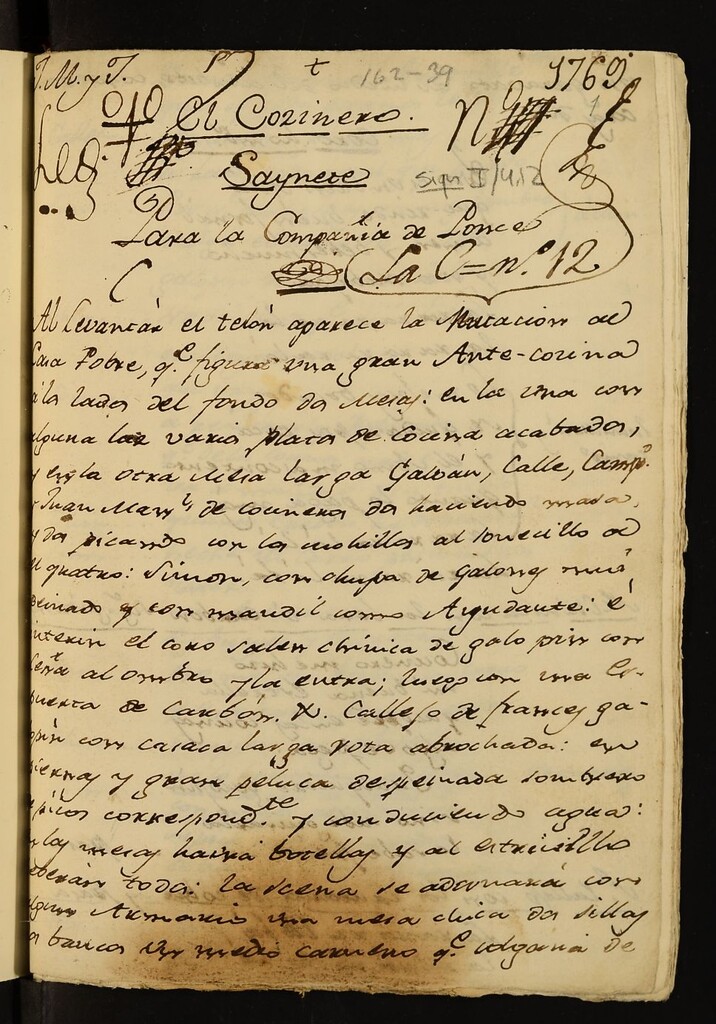 J. M. y J. t 162-39 1769
El Cozinero. N
Leg
Saynete Sign II/412
Para la Compañia de Ponce
La C=n.º 12
Al levantár el telón aparece la Mutacion de
Casa Pobre, q.e figura una gran Ante-cozina
a los lados del fondo dos Mesas: en la una con
alguna luz varios platos de Cocina acabados,
y en la otra Mesa larga Galbán, Calle, Camp.o
y Juan Man.l de cocineros dos haciendo masa,
y dos picando con las cuchillas al sonecillo de
el quatro: Simon, con chupa de Galones mui
peinado y con mandil como Ayudante: é
interin el coro salen chinica de galopin con
leña al ombro y la entra; luego con una Es-
puerta de Carbón. X. Callejo de frances ga-
lopin con casaca larga rota abrochada: en
piernas y gran peluca despeinada sombrero
picos correspond.te y conduciendo agua:
las mesas havrá botellas y al estrivillo
beberán todos: la scena se adornará con
algun Armario una mesa chica dos sillas
banco un medio carnero q.e colgará de